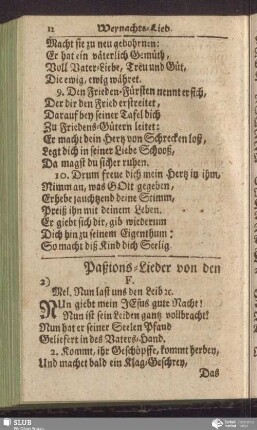 12 Weynachts-Lied.
Macht sie zu neu gebohrnen:
Er hat ein väterlich Gemüth,
Voll Vater-Liebe, Treu und Güt,
Die ewig, ewig währet.
9. Den Frieden-Fürsten nennt er sich,
Der dir den Fried erstreitet,
Darauf bey seiner Tafel dich
Zu Friedens-Gütern leitet:
Er macht dein Hertz von Schrecken loß,
Legt dich in seiner Liebe Schooß,
Da magst du sicher ruhen.
10. Drum freue dich mein Hertz in ihm,
Nimm an, was GOtt gegeben,
Erhebe jauchzend deine Stimm,
Preiß ihn mit deinem Leben.
Er giebt sich dir, gib wiederum
Dich hin zu seinem Eigenthum:
So macht diß Kind dich Seelig.
Paßions-Lieder von den
2) F.
Mel. Nun last uns den Leib ꝛc.
NUn giebt mein JEsus gute Nacht!
Nun ist sein Leiden gantz vollbracht!
Nun hat er seiner Seelen Pfand
Geliefert in des Vaters-Hand.
2. Kommt, ihr Geschöpffe, kommt herbey,
Und machet bald ein Klag-Geschrey,
Das
SLUB